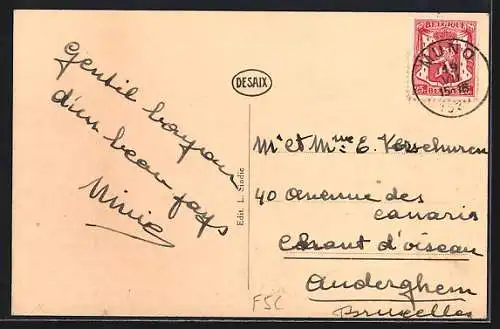 Gentil
d'un beau pays
Minie
DESAIX
Edit. L. Sindic
BELGIQUE
MUNO
15-16
Mr et Mme E. Verschuren
40 avenue des
canaris
Chant d'oiseau
Auderghem
Bruxelles
F5C